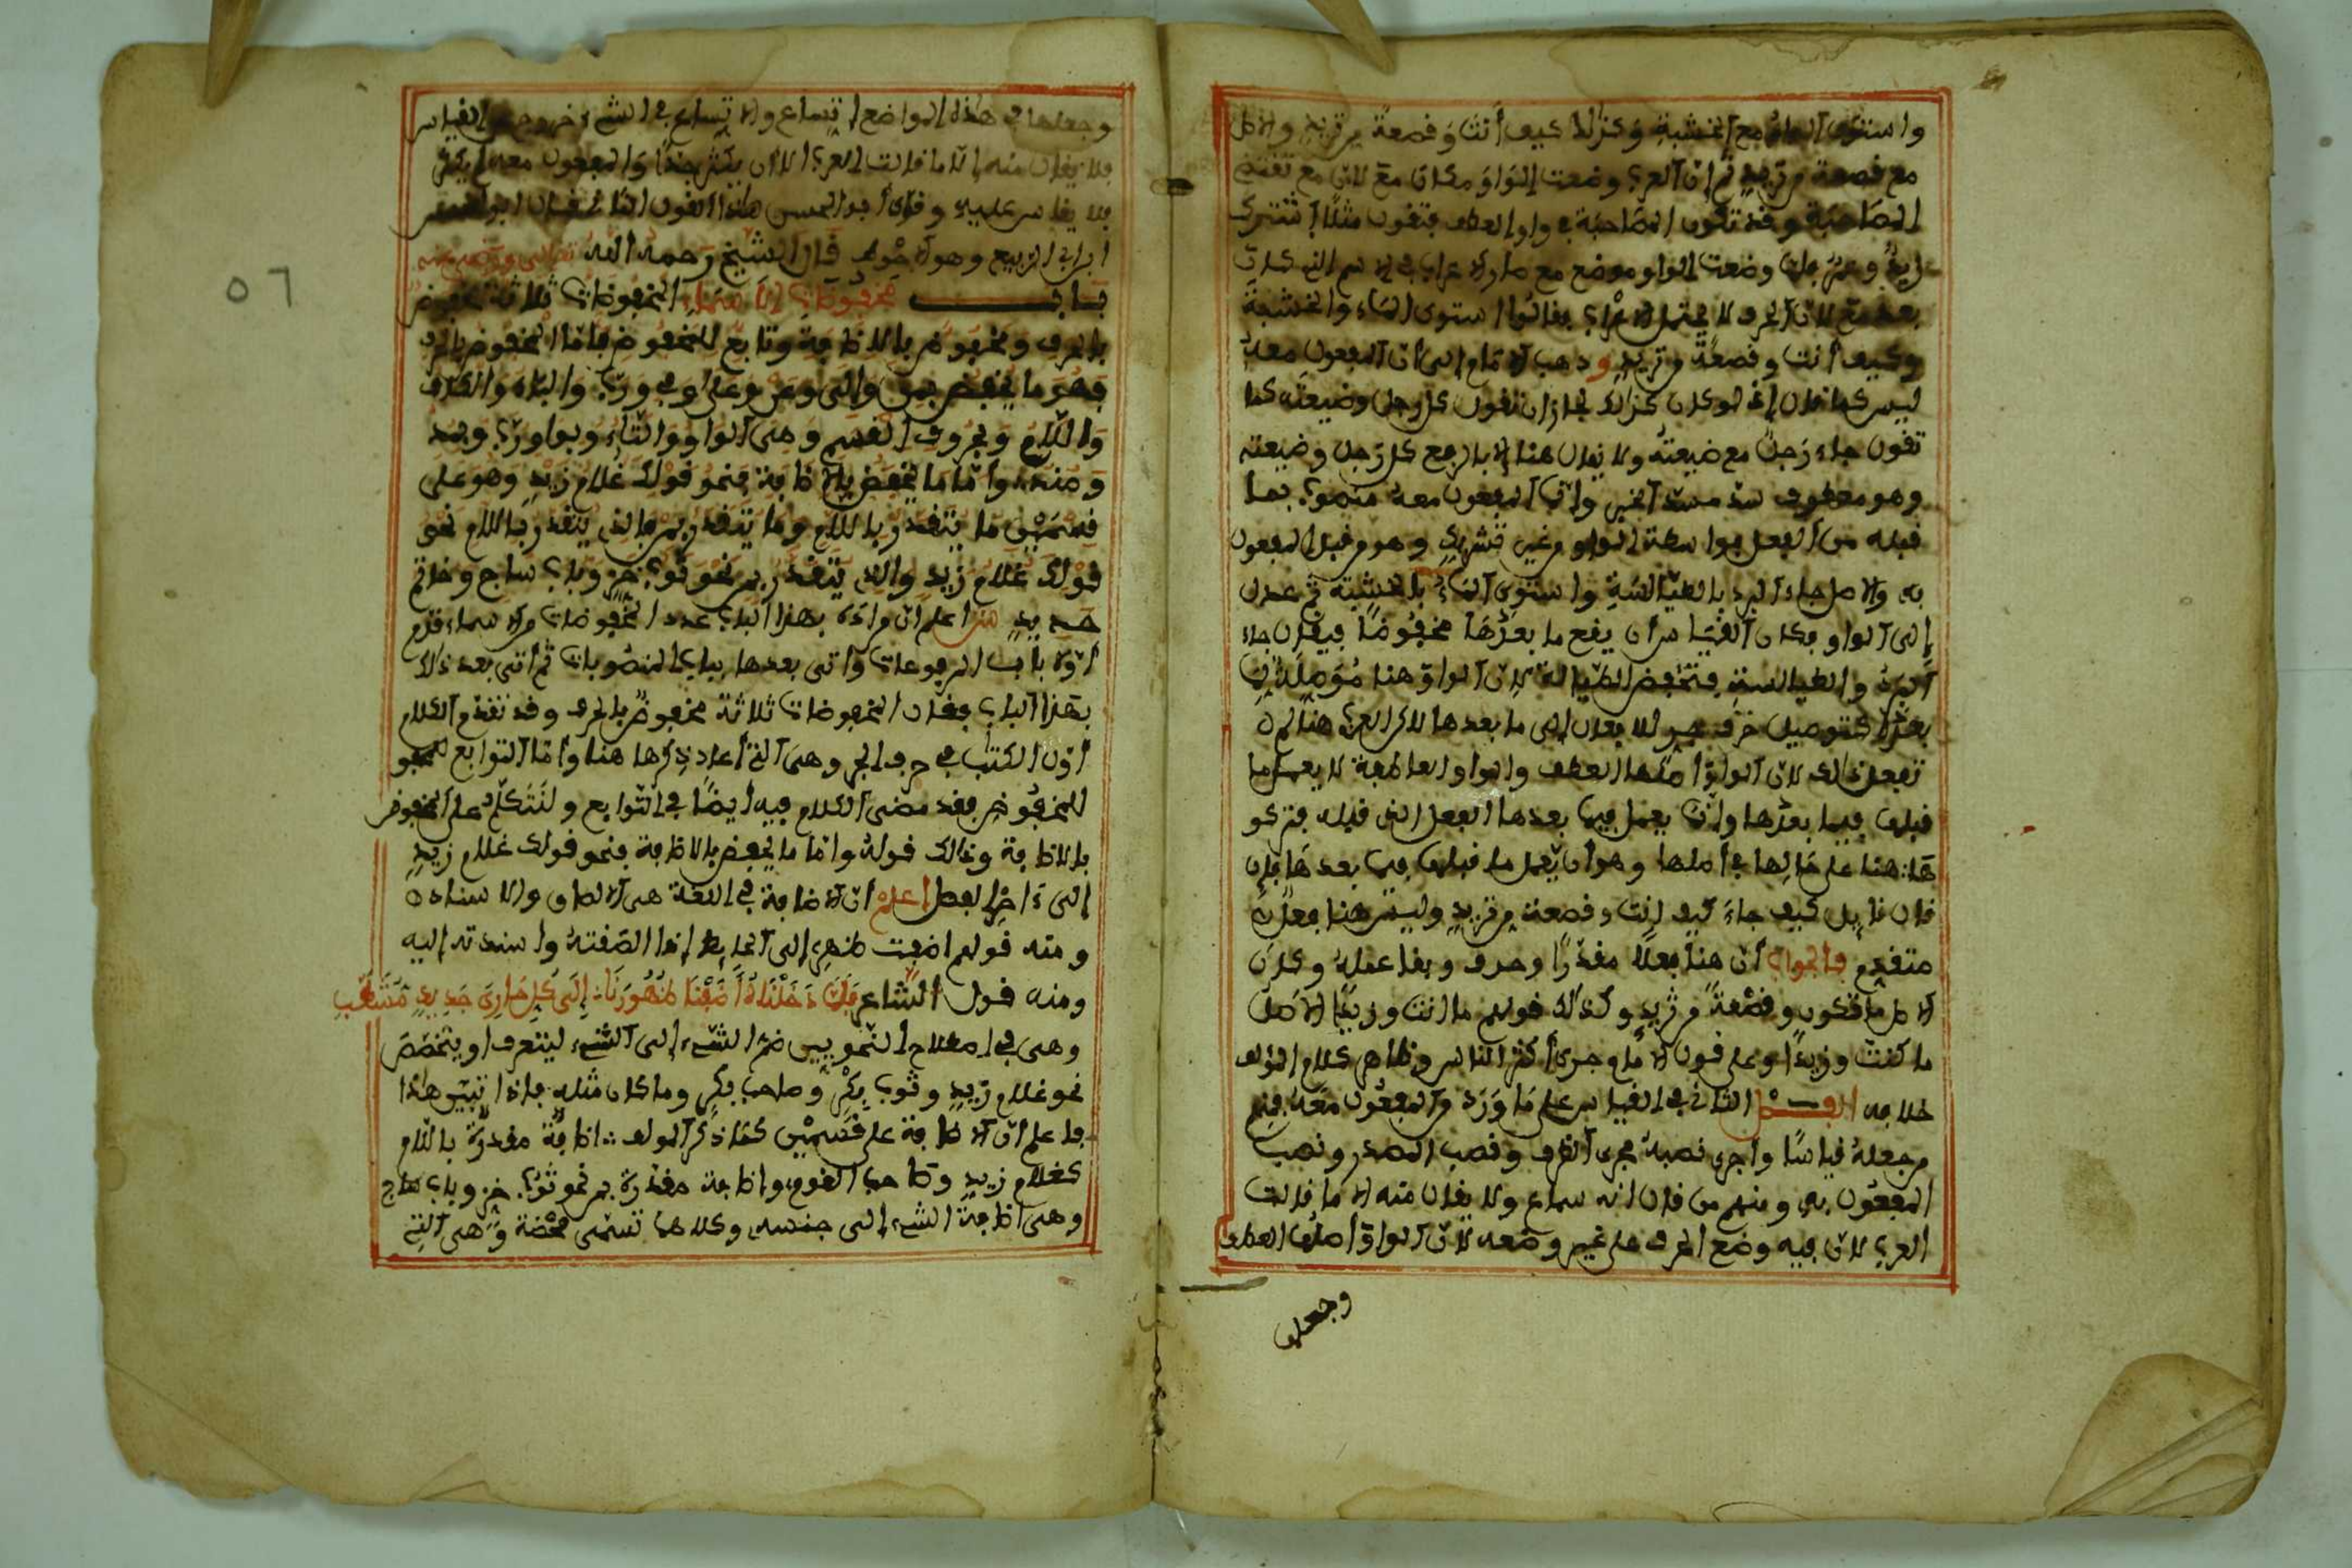 واستوى الماء مع الخشبة وكذلك كيف أنت وقصعة من ثريد والاصل
مع قصعة من ثريد ثم ان العرب وضعت الواو مكان مع لان مع تقتضي
المصاحبة وقد تكون المصاحبة في واو العطف فتقول مثلا اشترك
زيد وعمرو فلما وضعت الواو موضع مع صار الاعراب في الاسم الذي كان
بعد مع لان الحرف لا يحتمل الاعراب فقالوا استوى الماء والخشبة
وكيف أنت وقصعة من ثريد وذهب الامام الى أن المفعول معه
ليس كما قال إذ لو كان كذلك لجاز ان تقول كل رجل وضيعته كما
تقول جاء رجل مع ضيعته ولا يقال هنا إلا بالرفع كل رجل وضيعته
وهو معطوف سد مسد الخبر وانما المفعول معه منصوب بما
قبله من الفعل بواسطة الواو من غير تشريك وهو من قبل المفعول
به والاصل جاء البرد بالطيالسة واستوى الماء بالخشبة ثم عدل
إلى الواو فكان القياس أن يقع ما بعدها مخفوضا فيقال جاء
البرد والطيالسة فتخفض الطيالسة لان الواو هنا موصلة لما
بعدها كتوصيل حرف الجر للافعال إلى ما بعدها لاكن العرب هنا لم
تفعل ذلك لان الواو أصلها العطف والواو العاطفة لا يعمل ما
قبلها فيما بعدها وانما يعمل فيما بعدها الفعل الذي قبله فتركو
ها هنا على حالها في أصلها وهو أن يعمل ما قبلها فيما بعدها فإن
قال قايل كيف جاء كيف أنت وقصعة من ثريد وليس هنا فعل
متقدم فالجواب أن هنا فعلا مقدرا وحذف وبقا عمله وكان
الاصل ما تكون وقصعة من ثريد وكذلك قولهم ما أنت وزيدا الاصل
ما كنت وزيدا وعلى قول الامام وجرى أكثر الناس وظاهر كلام المؤلف
خلافه الفصل الثاني في القياس على ما ورد من المفعول معه فمنهم
من جعله قياسا وأجرى نصبه مجرى الظرف ونصب المصدر ونصب
المفعول به ومنهم من قال انه سماع ولا يقال منه الا ما قالت
العرب لان فيه وضع الحرف على غير وضعه لان الواو أصلها العطف
وجعلها
وجعلها في هذه المواضع اتساع والاتساع في الشيء خروج عن القياس
فلا يقال منه إلا ما قالت العرب الا ان يكثر جدا والمفعول معه لم يكثر
فلا يقاس عليه وقال أبو الحسن هاذا القول الثا
ابن أبي الربيع وهو الاحوط قال الشيخ رحمه الله تعالى ورضي عنه
باب مخفوضات الاسماء المخفوضات ثلاثة مخفوض
بالحرف ومخفوض بالاظافة وتابع للمخفوض فاما المخفوض بالحرف
فهو ما يخفض بمن والى وعن وعلى وفي ورب والباء والكاف
واللام وبحروف القسم وهي الواو والباء والتاء وبواو رب وبمذ
ومنذ وأما ما يخفض بالاظافة فنحو قولك غلام زيد وهو على
قسمين ما يتقدر باللام وما يتقدر بمن فالذي يتقدر باللام نحو
قولك غلام زيد والذي يتقدر بمن نحو ثوب خز وباب ساج وخاتم
حديد ش اعلم ان مراده بهذا الباب عدد المخفوضات من الاسماء قدم
أولا باب المرفوعات وأتى بعدها بباب المنصوبات ثم أتى بعد ذلك
بهذا الباب فقال المخفوضات ثلاثة مخفوض بالحرف وقد تقدم الكلام
أول الكتب في حرف الجر وهي التي أعاد ذكرها هنا وأما التوابع للمخفو
للمخفوض فقد مضى الكلام فيه أيضا في التوابع ولنتكلم على المخفوض
بالاظافة وذالك قوله وأما ما يخفض بالاظافة فنحو قولك غلام زيد
إلى ءاخر الفصل اعلم أن الاضافة في اللغة هي الالصاق والاسناد
ومنه قولهم اضفت ظهري إلى الحايط إذا الصقته واسندته إليه
ومنه قول الشاعر فلما دخلناه أضفنا ظهورنا إلى كل حاري جديد مشطب
وهي في اصطلاح النحويين ضم الشيء إلى الشيء ليتعرف أو يتخصص
نحو غلام زيد وثوب بكر وصاحب بكر وما كان مثله فإذا تبين هاذا
فاعلم أن الاظافة على قسمين كما ذكر المولف اظافة مقدرة باللام
كغلام زيد وصاحب القوم واظافة مقدرة بمن نحو ثوب خز وباب ساج
وهي اظافة الشيء إلى جنسه وكلاهما تسمى محضة وهي التي
٥٦